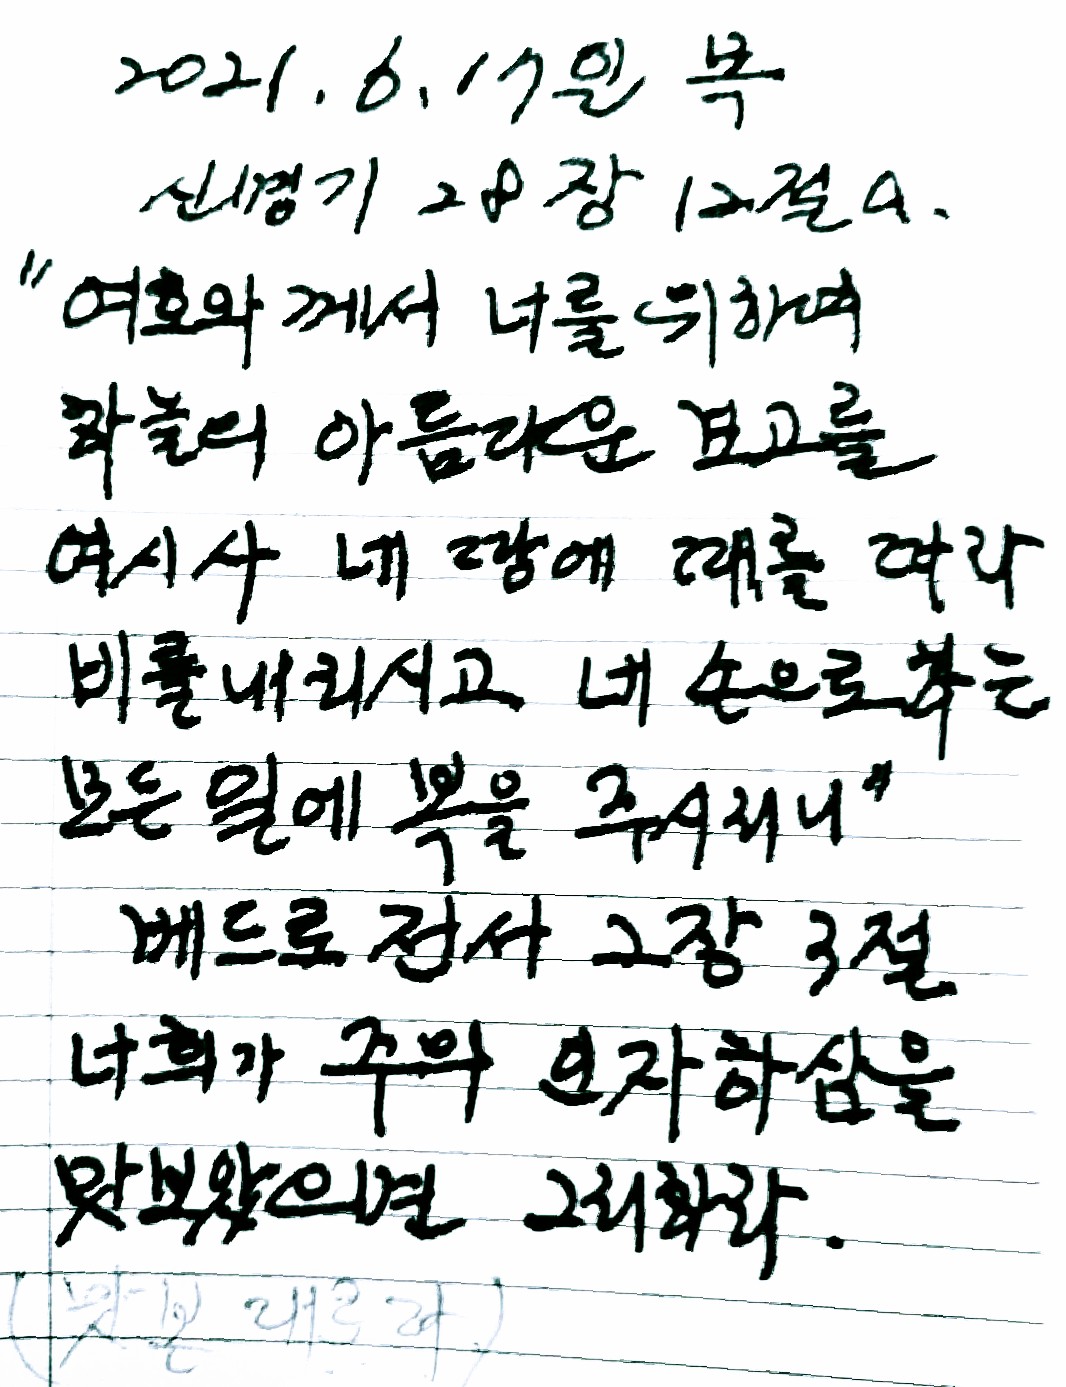 2021. 6. 17일 목
신명기 28장 12절a.
"여호와께서 너를 위하여
하늘의 아름다운 보고를
여시사 네 땅에 때를 따라
비를 내리시고 네 손으로 하는
모든 일에 복을 주시리니"
베드로 전서 2장 3절
너희가 주의 인자하심을
맛보았으면 그리하라.